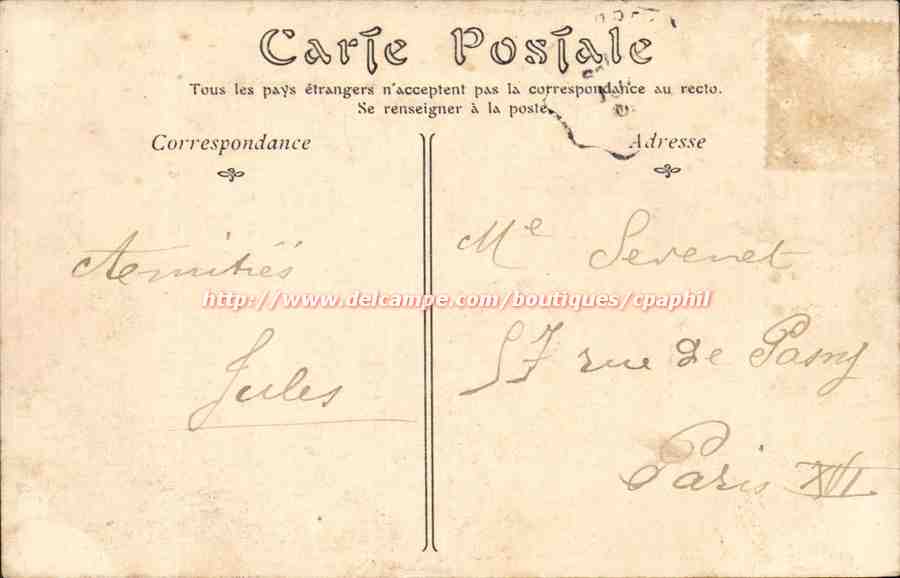 Carte Postale
Tous les pays étrangers n'acceptent pas la correspondance au recto.
Se renseigner à la poste.
Correspondance
Adresse
Amitiés
Jules
Me Sevenet
57 rue de Passy
Paris XVI
http://www.delcampe.com/boutiques/cpaphil